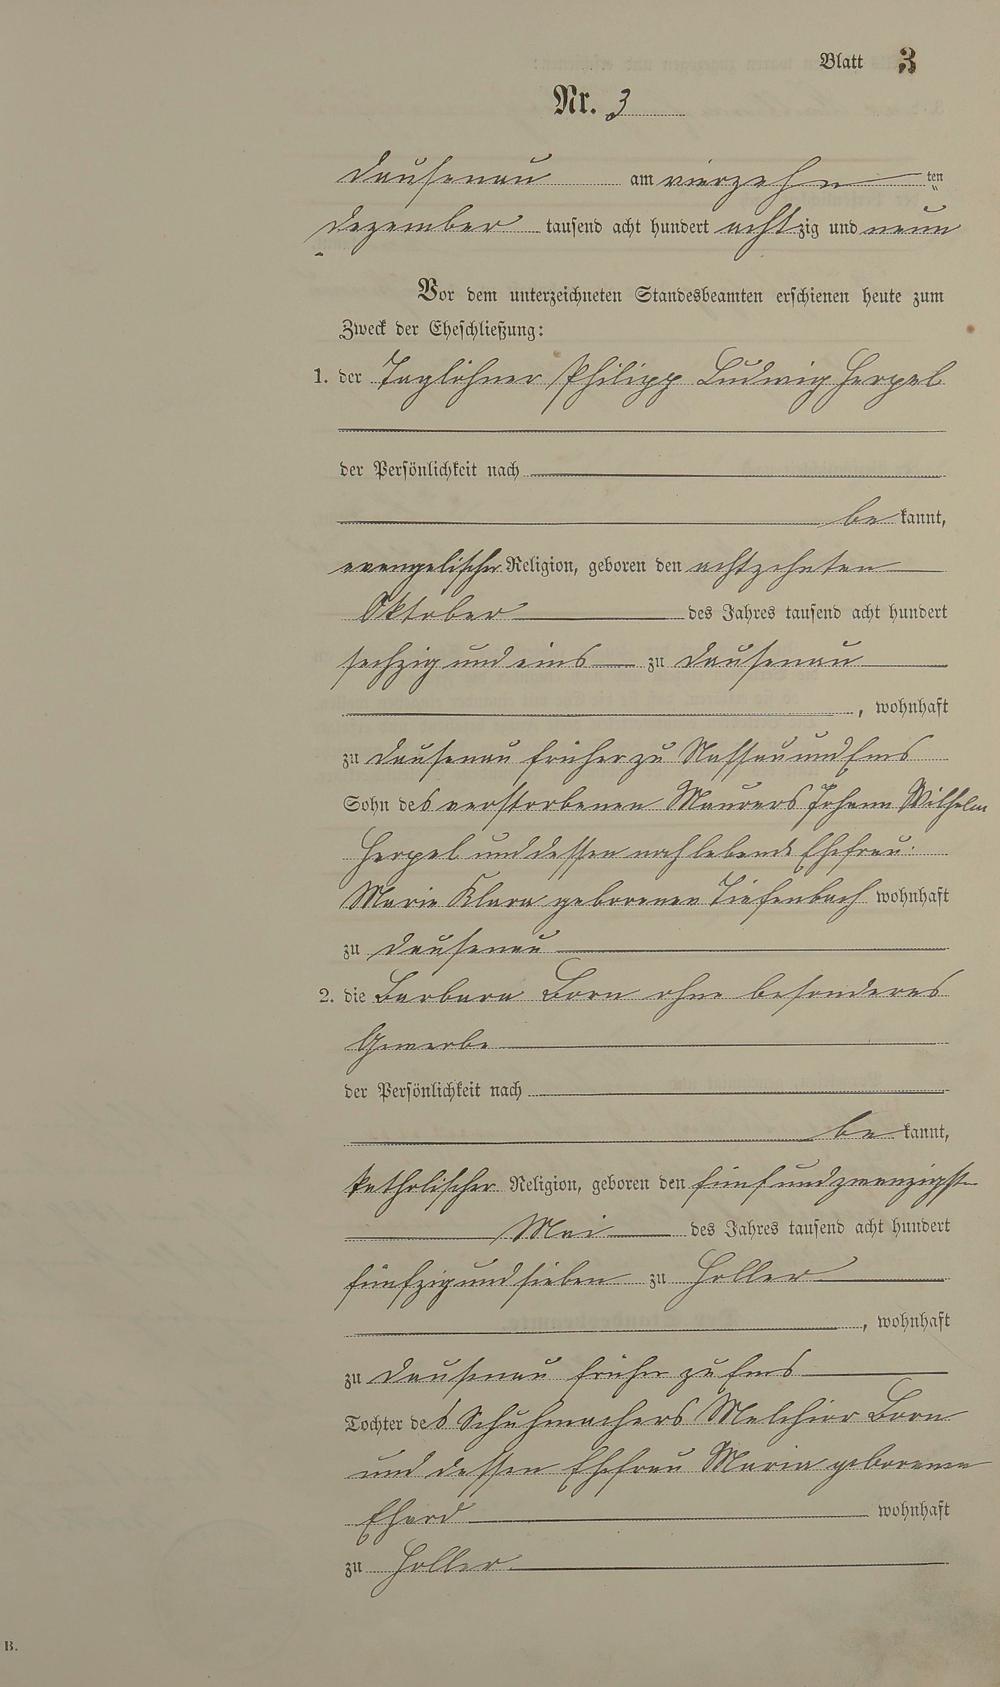 Blatt 3
Nr. 3
Dausenau am vierzehn ten
Dezember tausend acht hundert achtzig und neun
Vor dem unterzeichneten Standesbeamten erschienen heute zum
Zweck der Eheschließung:
1. der Taglöhner Philipp Ludwig Herpel
der Persönlichkeit nach
be kannt,
evangelischer Religion, geboren den achtzehnten
Oktober des Jahres tausend acht hundert
sechzig und eins zu Dausenau
, wohnhaft
zu Dausenau früher zu Nassau und Ems
Sohn des verstorbenen Maurers Johann Wilhelm
Herpel und dessen noch lebende Ehefrau
Marie Klara geborenen Tiefenbach wohnhaft
zu Dausenau
2. die Barbara Born ohne besonderes
Gewerbe
der Persönlichkeit nach
be kannt,
katholischer Religion, geboren den fünf und zwanzigst
Mai des Jahres tausend acht hundert
fünfzig und sieben zu Holler
, wohnhaft
zu Dausenau früher zu Ems
Tochter des Schuhmachers Melchior Born
und dessen Ehefrau Maria geborenen
wohnhaft
zu Holler
B.